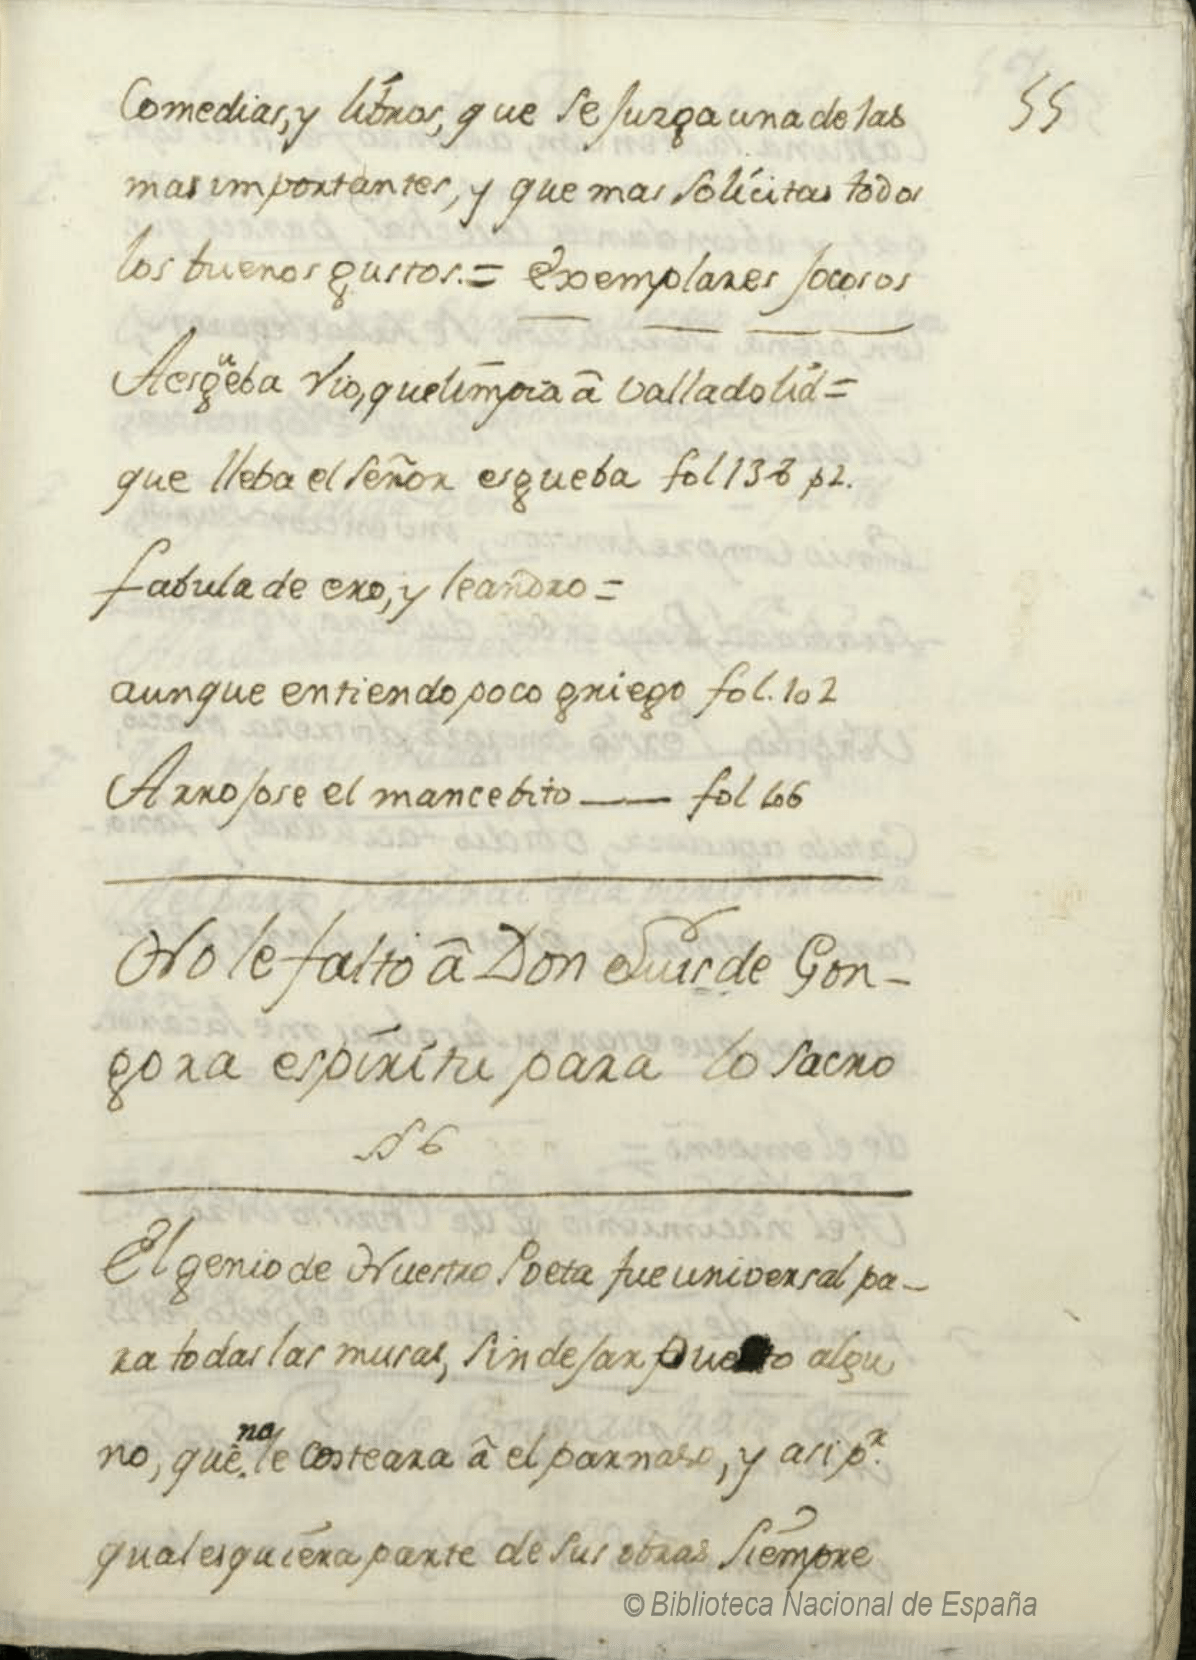 55
Comedias, y libros, que se Jurga una de las
mas importantes, y que mas solicitas todos
los buenos gustos.= exemplares Jocosos
A esgueba rio, que limpia â Valladolid=
que lleba el señor esgueba fol 138 p2.
fabula de ero, y leandro=
aunque entiendo poco griego fol. 102
Arrojose el mancebito —— fol 106
No le falto â Don Luis de Gon-
gora espiritu para lo sacro
§ 6
El genio de Nuestro Poeta fue universal pa-
ra todas las musas, sin dejar puesto algu
no, que no le costeara â el parnaso, y asi pr.
qualesquiera parte de sus obras siempre
© Biblioteca Nacional de España